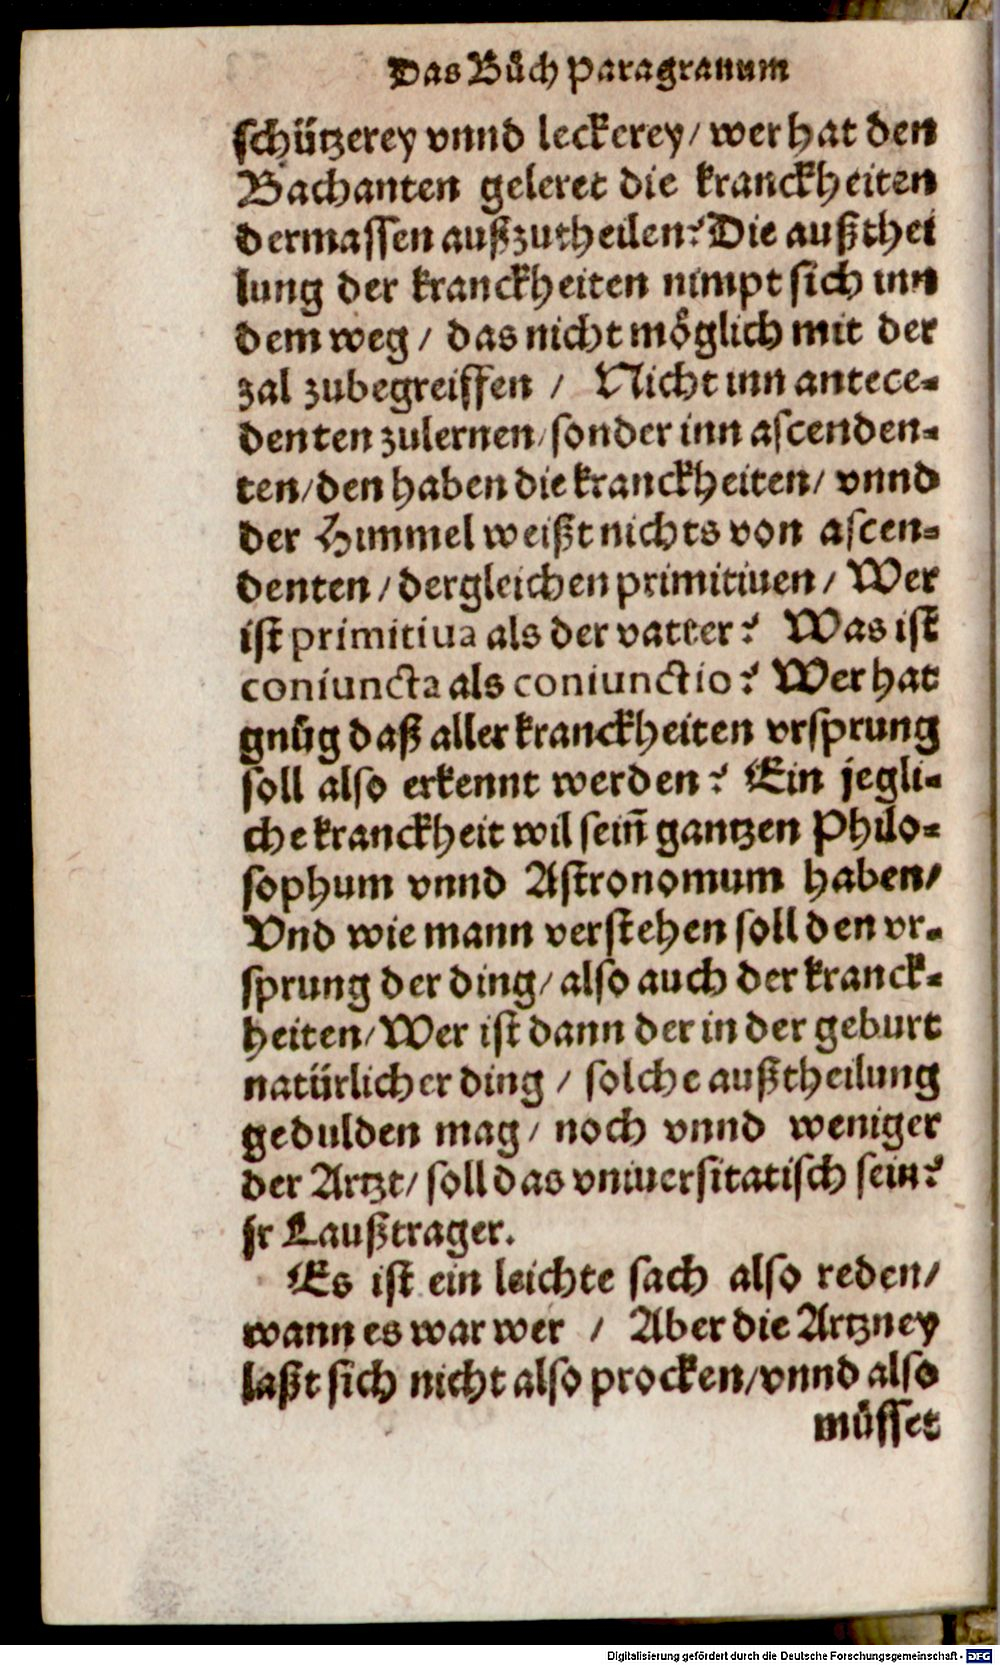 Das Bůch Paragranum
schützerey vnnd leckerey/ wer hat den
Bachanten geleret die kranckheiten
dermassen außzutheilen? Die außthei
lung der kranckheiten nimpt sich inn
dem weg / das nicht möglich mit der
zal zubegreiffen / Nicht inn antece-
denten zulernen/ sonder inn ascenden-
ten/ den haben die kranckheiten/ vnnd
der Himmel weißt nichts von ascen-
denten / dergleichen primitiuen / Wer
ist primitiua als der vatter? Was ist
coniuncta als coniunctio? Wer hat
gnůg daß aller kranckheiten vrsprung
soll also erkennt werden? Ein jegli-
che kranckheit wil sein̄ gantzen Philo-
sophum vnnd Astronomum haben/
Vnd wie mann verstehen soll den vr-
sprung der ding/ also auch der kranck-
heiten/ Wer ist dann der in der geburt
natürlicher ding / solche außtheilung
gedulden mag/ noch vnnd weniger
der Artzt/ soll das vniuersitatisch sein?
jr Laußtrager.
Es ist ein leichte sach also reden/
wann es war wer / Aber die Artzney
laßt sich nicht also procken/ vnnd also
můsset
Digitalisierung gefördert durch die Deutsche Forschungsgemeinschaft - DFG